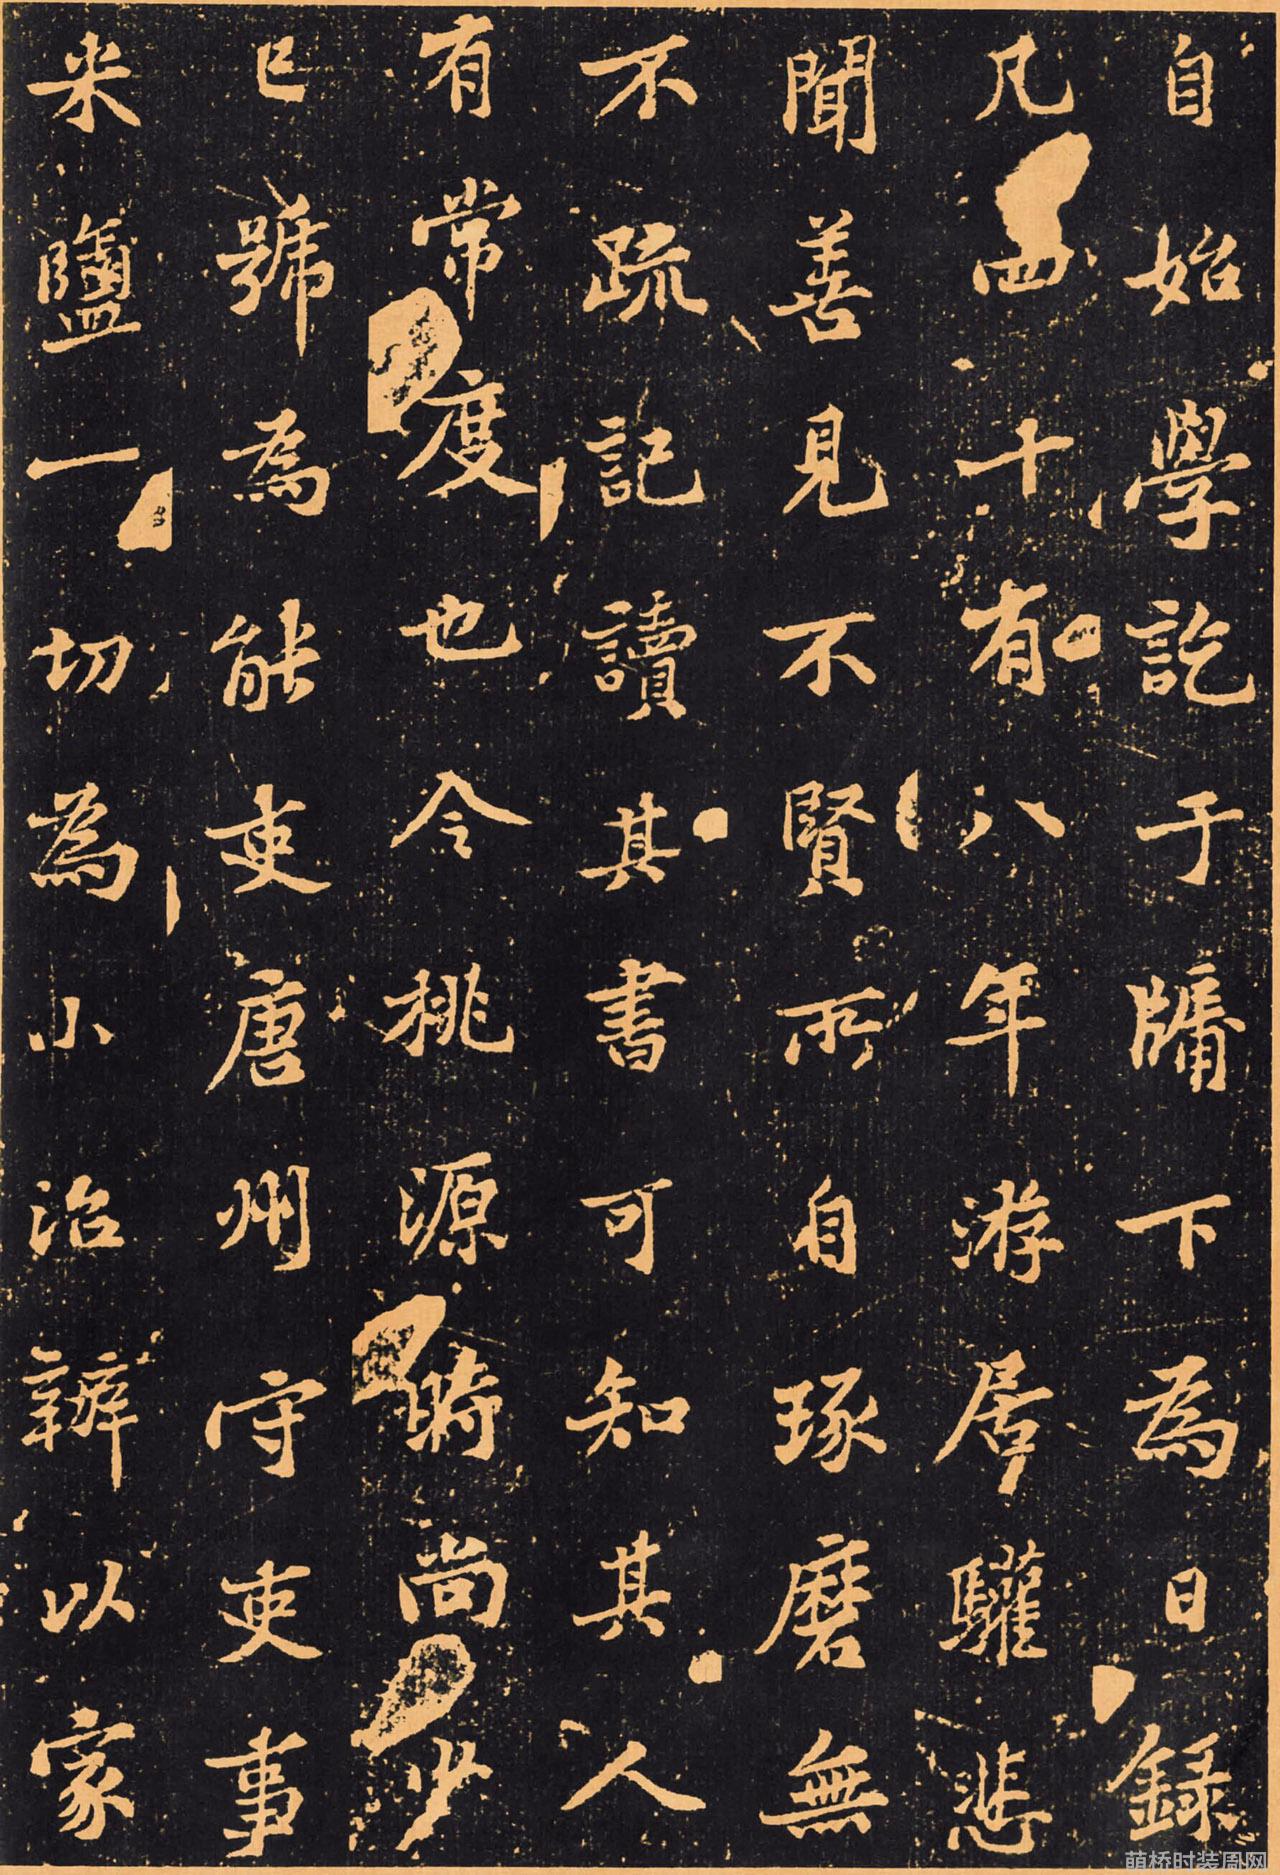 自始學訖于牖下為日録
凡四十有八年游居驩悲
聞善見不賢所自琢磨無
不疏記讀其書可知其人
有常度也令桃源時尚少
已號為能吏唐州守吏事
米鹽一切為小治辦以家
萌桥时装周网